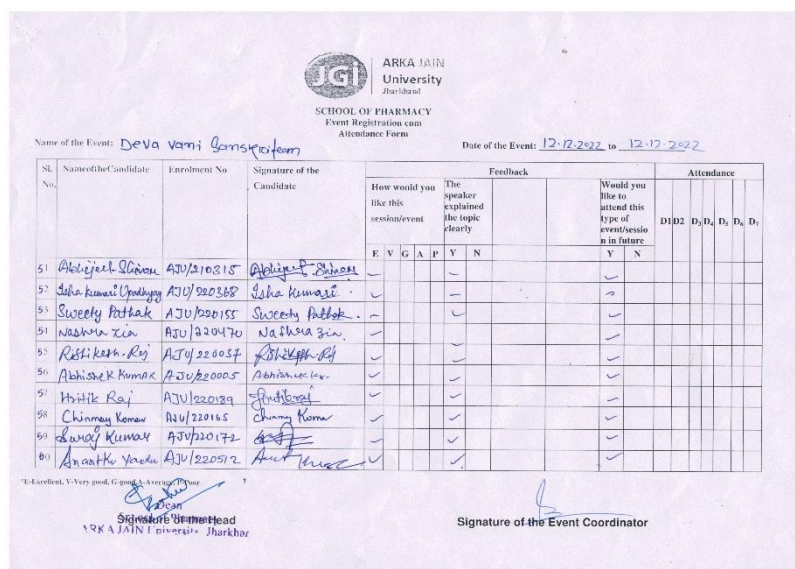 JGI
ARKA JAIN
University
Jharkhand
SCHOOL OF PHARMACY
Event Registration cum
Attendance Form
Name of the Event: Deva Vani Sanskritam
Date of the Event: 12.12.2022 to 12.12.2022
Sl. No. Name of the Candidate Enrolment No Signature of the Candidate Feedback Attendance
How would you like this session/event The speaker explained the topic clearly Would you like to attend this type of event/session in future D1 D2 D3 D4 D5 D6 D7
E V G A P Y N Y N
51 AJU/210315
52 Isha Kumari Upadhyay AJU/220368 Isha Kumari.
53 Sweety Pathak AJU/220155 Sweety Pathak.
54 Nashra Zia AJU/220470 Nashra Zia.
55 Rishikesh Raj AJU/220037 Rishikesh Raj
56 Abhishek Kumar AJU/220005 Abhishek kr.
57 Hritik Raj AJU/220189
58 Chinmay AJU/220165
59 Suraj Kumar AJU/220172
60 AJU/220512
*E-Excellent, V-Very good, G-good, A-Average, P-Poor
Dean
Signature of the Head
School of Pharmacy
ARKA JAIN University Jharkhand
Signature of the Event Coordinator